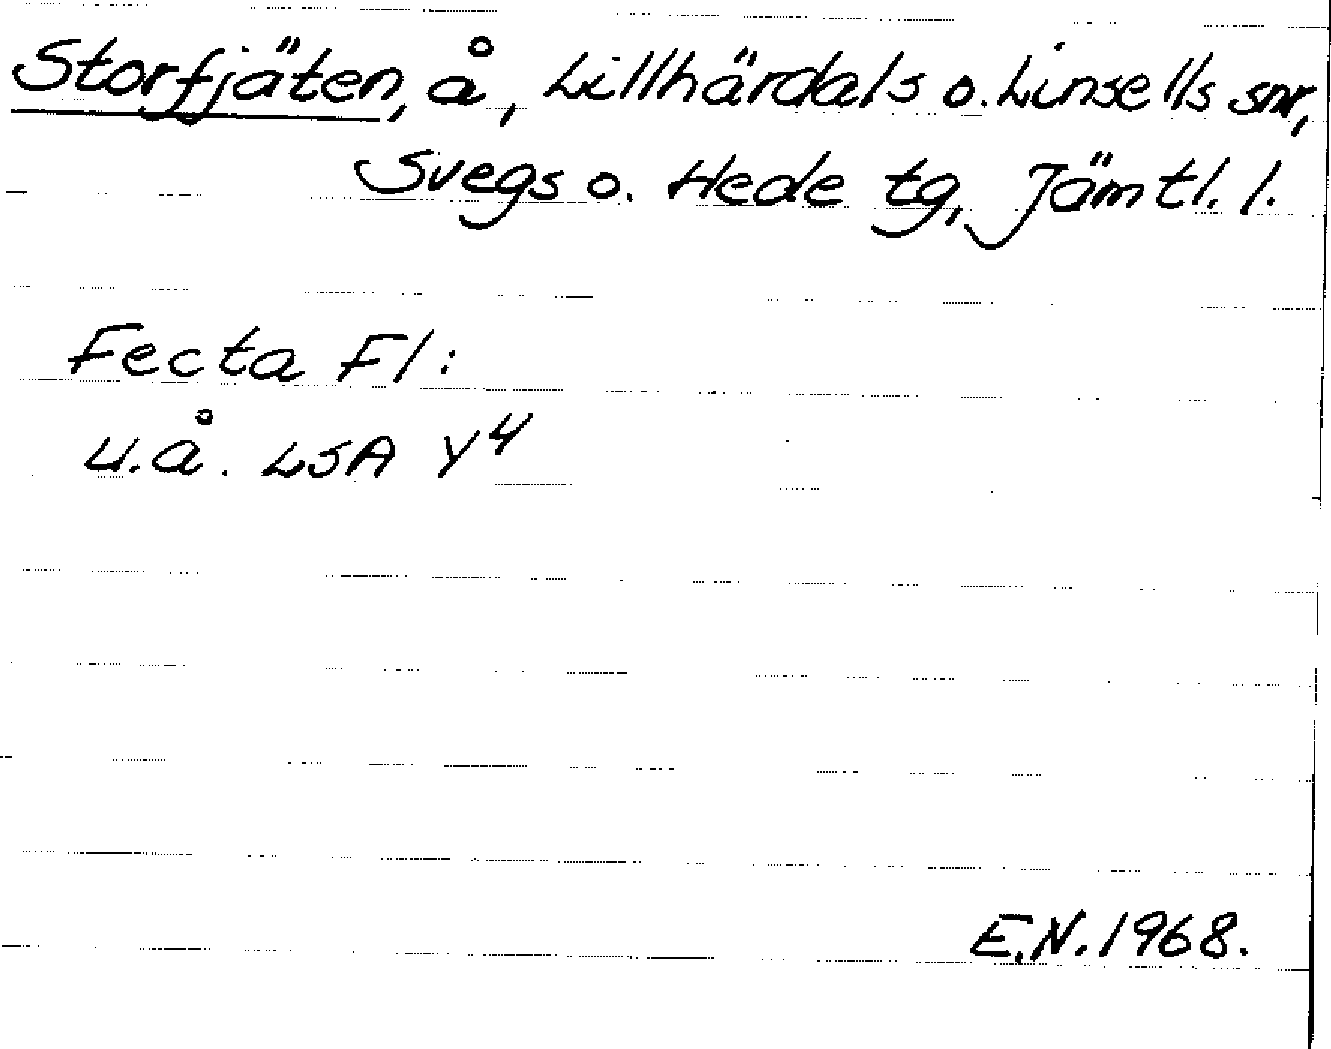 Storfjäten, å, Lillhärdals o. Linsells snr,
Svegs o. Hede tg, Jämtl. l.
Fecta Fl:
u.å. LSA Y4
E.N. 1968.